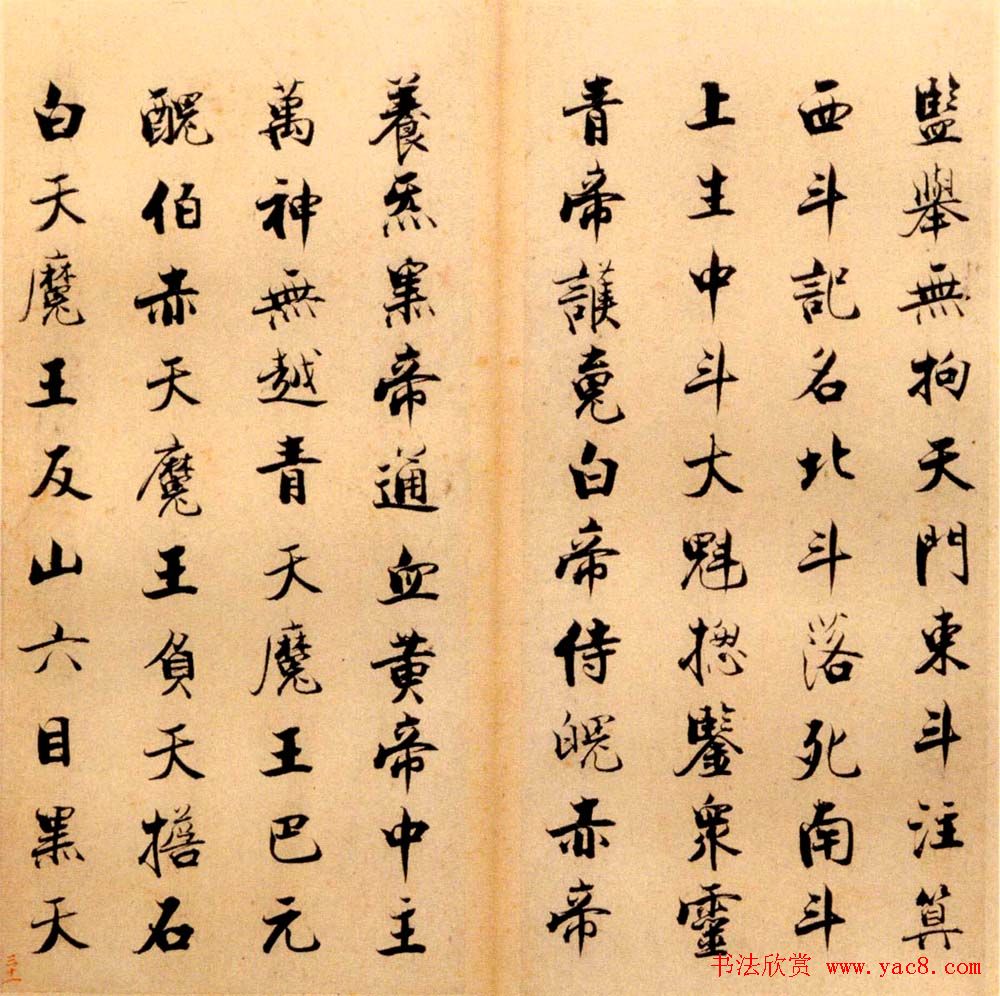 監舉無拘天門東斗注算
西斗記名北斗落死南斗
上生中斗大魁摠鑒衆靈
青帝護䰟白帝侍魄赤帝
養炁黑帝通血黃帝中主
萬神無越青天魔王巴元
醜伯赤天魔王負天擔石
白天魔王反山六目黑天
三十一
书法欣赏 www.yac8.com